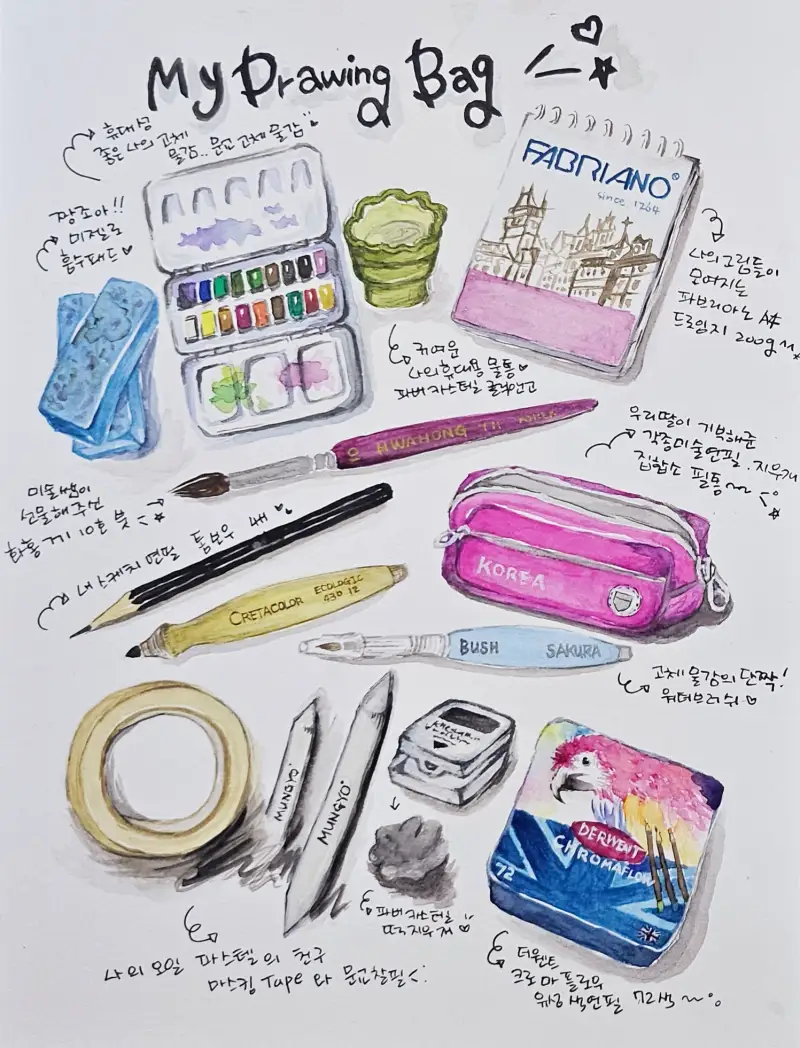 My Drawing Bag
휴대성
좋은 나의 고체
물감.. 문교 고체 물감
짱조아!!
미젤로
흡수패드
FABRIANO®
since 1264
나의 그림들이
모여지는
파브리아노 A4
드로잉지 200g
귀여운
나의 휴대용 물통
파버카스텔 클릭앤고
우리딸이 기부해준
각종미술연필.지우개
집합소 필통~
10 HWAHONG 711
미술쌤이
선물해주신
화홍 711 10호 붓
내 스케치 연필 톰보우 4H
CRETACOLOR ECOLOGIC
430 12
KOREA
BUSH SAKURA
고체물감의 단짝!
워터브러쉬
MUNGYO
MUNGYO
DERWENT
CHROMAFLOW
72
파버카스텔
떡지우개
나의 오일 파스텔의 친구
마스킹 Tape 와 문교찰필
더웬트
크로마 플로우
유성색연필 72색~